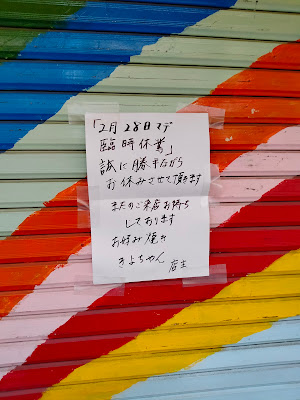 「2月28日マデ
臨時休業」
誠に勝手ながら
お休みさせて頂きます
またのご来店お待ち
しております
お好み焼き
きよちゃん
店主